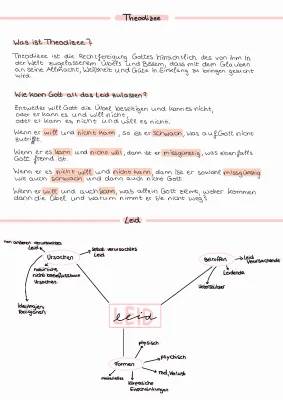 Theodizee
Was ist Theodizee?
Theodizee ist die Rechtfertigung Gottes hinsichtlich des von ihm in
der Welt zugelassenem Übels und Bösem, dass mit dem Glauben
an seine Allmacht, Weisheit und Güte in Einklang zu bringen gesucht
wird.
Wie kann Gott all das Leid zulassen?
Entweder will Gott die Übel beseitigen und kann es nicht,
oder er kann es und will nicht,
oder er kann es nicht und will es nicht.
Wenn er will und nicht kann, so ist er schwach, was auf Gott nicht
zutrifft.
Wenn er es kann und nicht will, dann ist er missgünstig, was ebenfalls
Gott fremd ist.
Wenn er es nicht will und nicht kann, dann ist er sowohl missgünstig
wie auch schwach und dann auch nicht Gott.
Wenn er will und auch kann, was allein Gott ziemt, woher kommen
dann die Übel und warum nimmt er sie nicht weg?
Leid
von anderen verursachtes
Leid
Ursachen
selbst verursachtes
Leid
natürliche,
nicht beeinflussbare
Ursachen
Ideologien
Religionen
Betroffen
Leid
Verursachende
Leidende
LEID
leid
Formen
physisch
psychisch
Tod, Verlust
körperliche
Einschränkungen
materielles